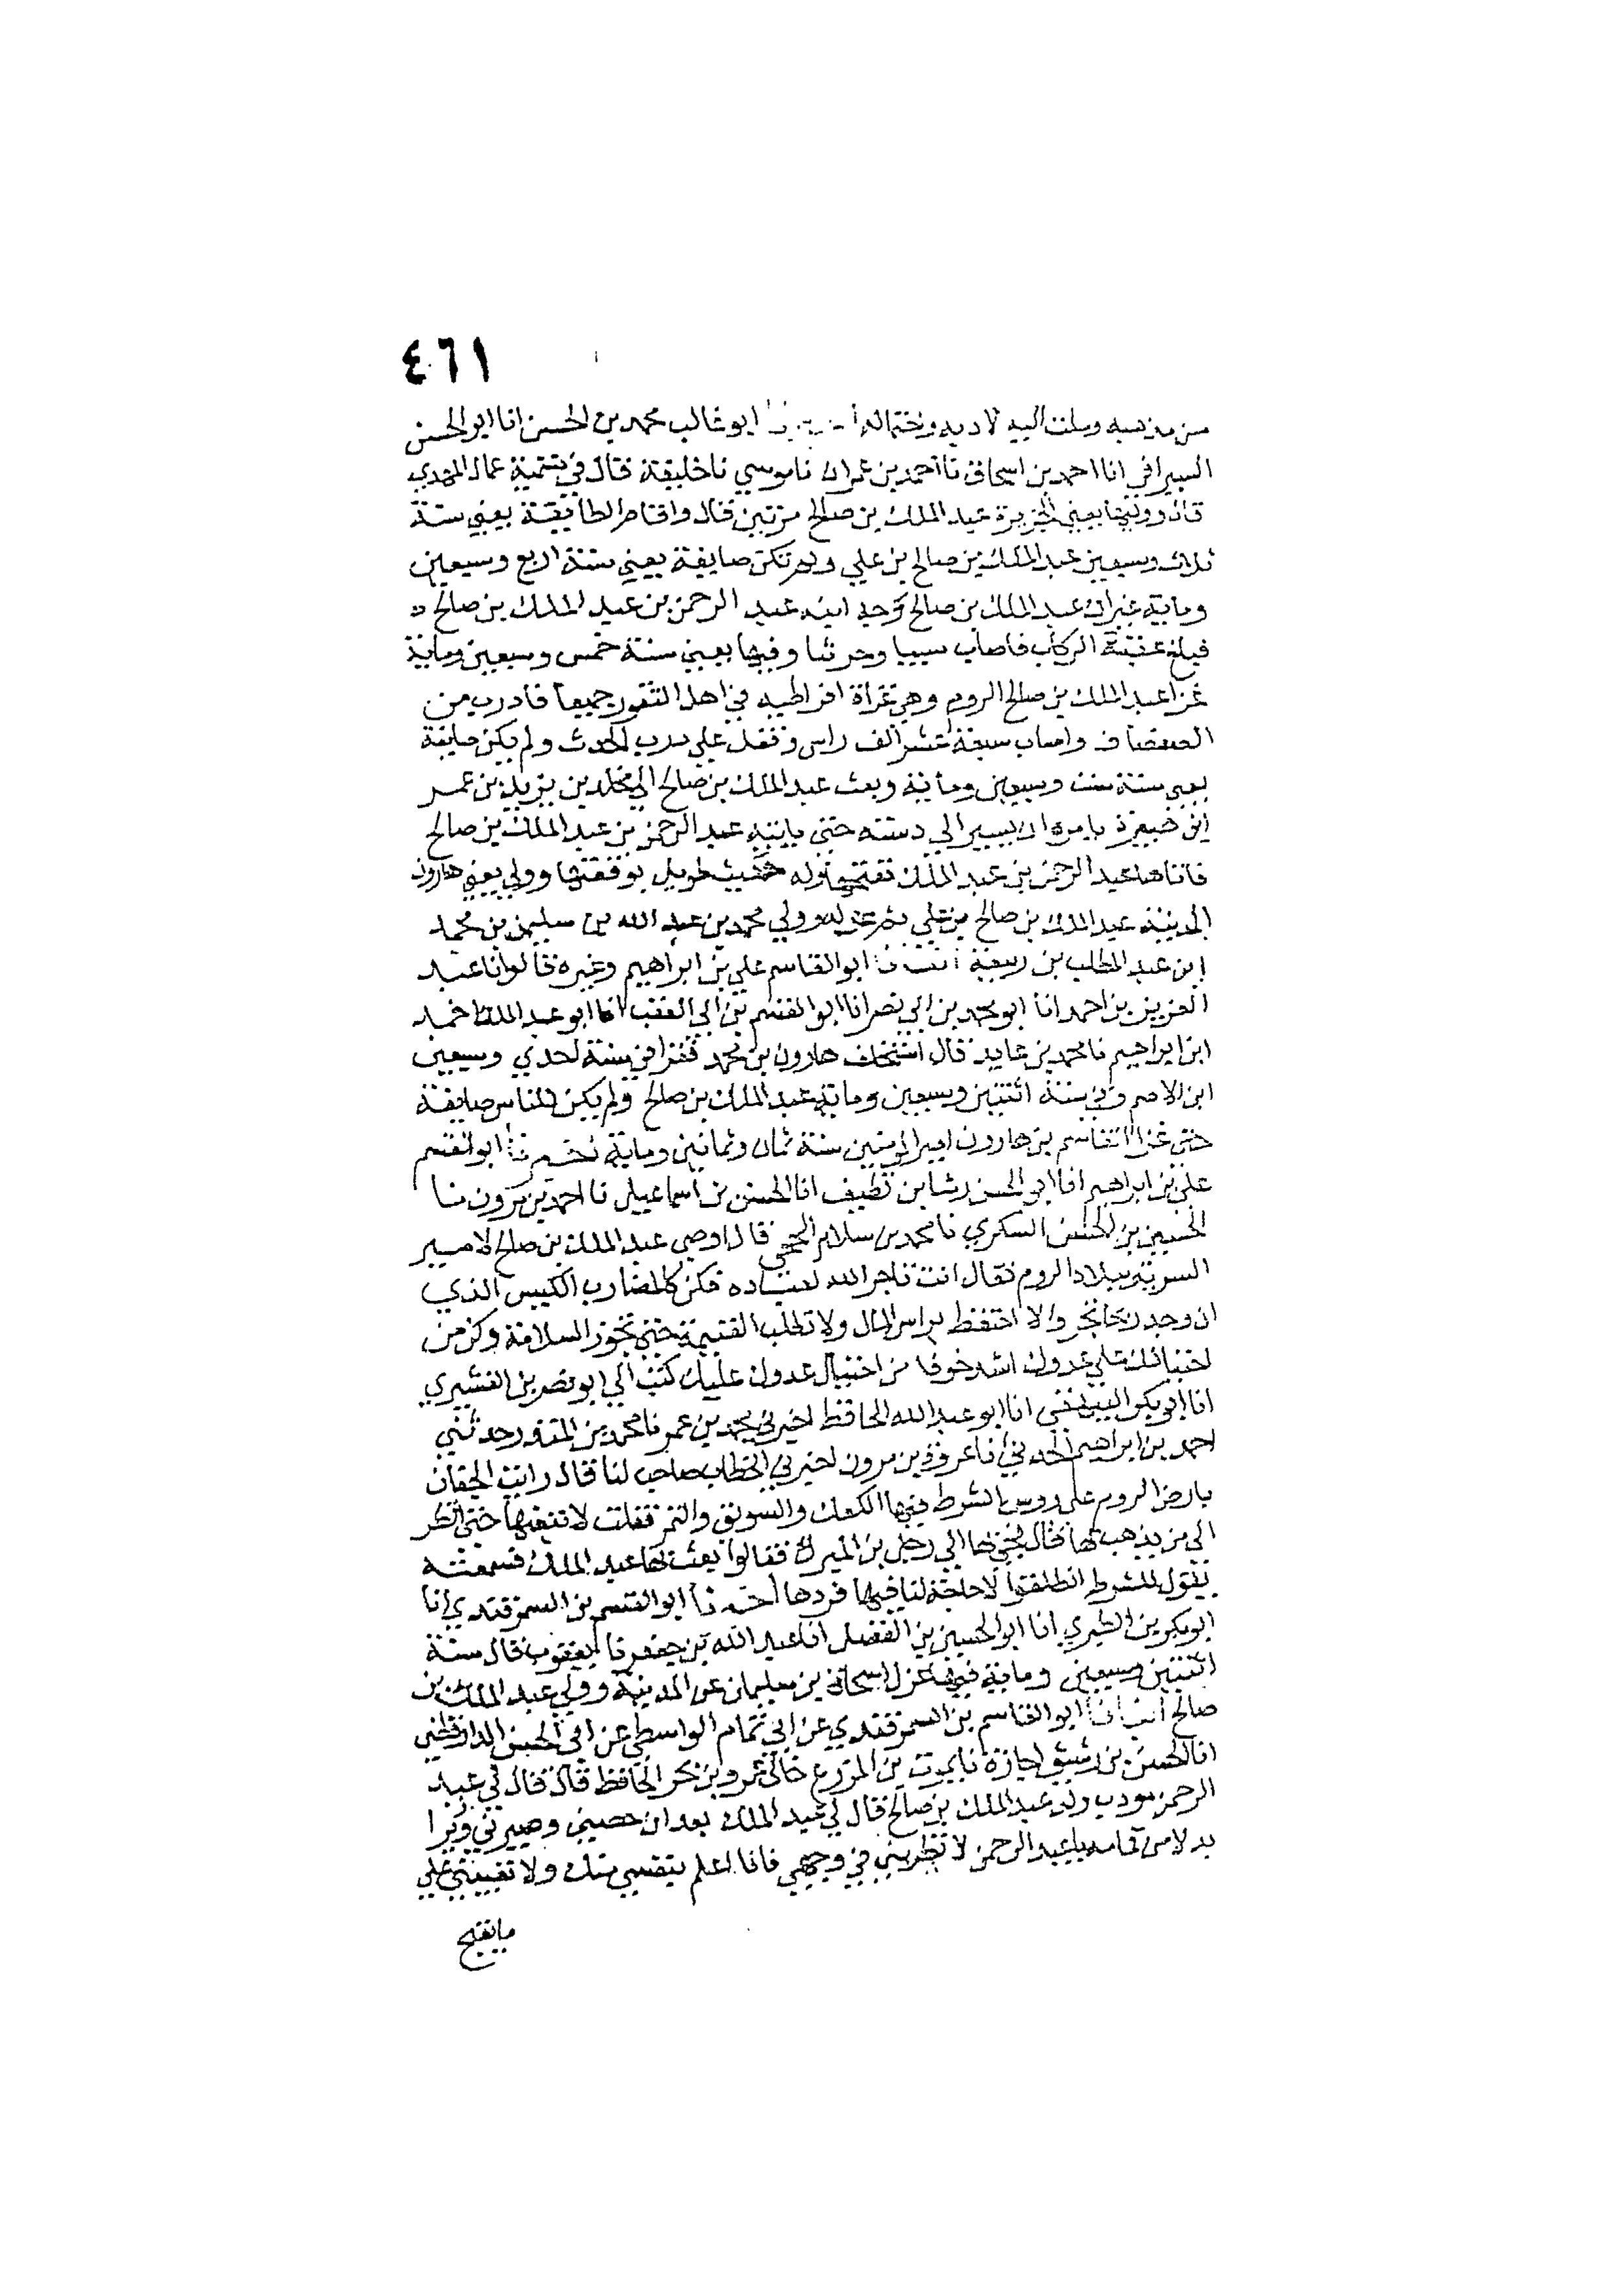 ٤٦١
ابو غالب محمد بن الحسن انا ابو الحسن
السيرافي انا احمد بن اسحاق نا احمد بن عمران نا موسى نا خليفة قال في تسمية عمال المهدي
قال وولي يعني الجزيرة عبد الملك بن صالح مرتين قال واقام الطايفة يعني سنة
ثلاث وسبعين عبد الملك بن صالح بن علي ولم تكن صايفة يعني سنة اربع وسبعين
وماية غير ان عبد الملك بن صالح وجه ابنه عبد الرحمن بن عبد الملك بن صالح
فبلغ عقبة الركاب فاصاب سبيا وحرثا وفيها يعني سنة خمس وسبعين وماية
غزا عبد الملك بن صالح الروم وهي غزاة افراطيه في اهل الثغور جميعا فادرب من
الصفصاف واصاب سبعة عشر الف راس وقفل على درب الحدث ولم يكن صايفة
يعني سنة ست وسبعين وماية وبعث عبد الملك بن صالح الى مخلد بن يزيد بن عمر
ابن هبيرة يامره ان يسير الى دبسه حتى ياتيه عبد الرحمن بن عبد الملك بن صالح
فاتاها عبد الرحمن بن عبد الملك ففتحها وله حديث طويل بوقعتها وولي يعني هارون
المدينة عبد الملك بن صالح بن علي ثم عزله وولي محمد بن عبد الله بن سليمن بن محمد
ابن عبد المطلب بن ربيعة ابو القاسم علي بن ابراهيم وغيره قالوا نا عبد
العزيز بن احمد انا ابو محمد بن ابي نصر انا ابو القسم بن ابي العقب انا ابو عبد الملك احمد
ابن ابراهيم نا محمد بن عايذ قال استخلف هارون بن محمد فغزا في سنة احدي وسبعين
ابن الاصم وفي سنة اثنتين وسبعين وماية عبد الملك بن صالح ولم يكن للناس صايفة
حتى غزا القاسم بن هارون امير المومنين سنة ثمان وثمانين وماية ابو القسم
علي بن ابراهيم انا ابو الحسن رشا بن نظيف انا الحسن بن اسماعيل نا احمد بن مرون نا
الحسين بن الحسن السكري نا محمد بن سلام الجمحي قال اوصى عبد الملك بن صالح لامير
السرية ببلاد الروم فقال انت تاجر الله لعباده فكن كالمضارب الكيس الذي
ان وجد ربحا تجر والا احتفظ براس المال ولا تطلب الغنيمة حتى تحوز السلامة وكن من
احتيالك على عدوك اشد خوفا من احتيال عدوك عليك كتب الي ابو نصر بن القشيري
انا ابو بكر البيهقي انا ابو عبد الله الحافظ اخبرني محمد بن عمر نا محمد بن المنذر حدثني
احمد بن ابراهيم نا عروة بن مرون اخبرني الخطاب صاحب لنا قال رايت الجفان
بارض الروم على روس الشرط فيها الكعك والسويق والتمر فقلت لا تتبعنها حتى انظر
الى من يذهب بها قال الى رجل بن المبرك فقالوا بعث بها عبد الملك فسمعته
يقول للشرط انطلقوا لا حاجة لنا فيها فردها ابو القسم بن السمرقندي انا
ابو بكر بن الطبري انا ابو الحسين بن الفضل انا عبد الله بن جعفر نا يعقوب قال سنة
اثنتين وسبعين وماية فيها عزل اسحاق بن سليمان عن المدينة وولي عبد الملك بن
صالح ابو القاسم بن السمرقندي عن ابي تمام الواسطي عن ابي الحسن الدارقطني
انا الحسن بن رشيق اجازة نا يموت بن المزرع خالي عمرو بن بحر الحافظ قال قال لي عبد
الرحمن مودب ولد عبد الملك بن صالح قال لي عبد الملك بعد ان خصني وصيرني وزيرا
بدلا من قمامه يا عبد الرحمن لا تطريني في وجهي فانا اعلم بنفسي منك ولا تعينني على
ما يقبح